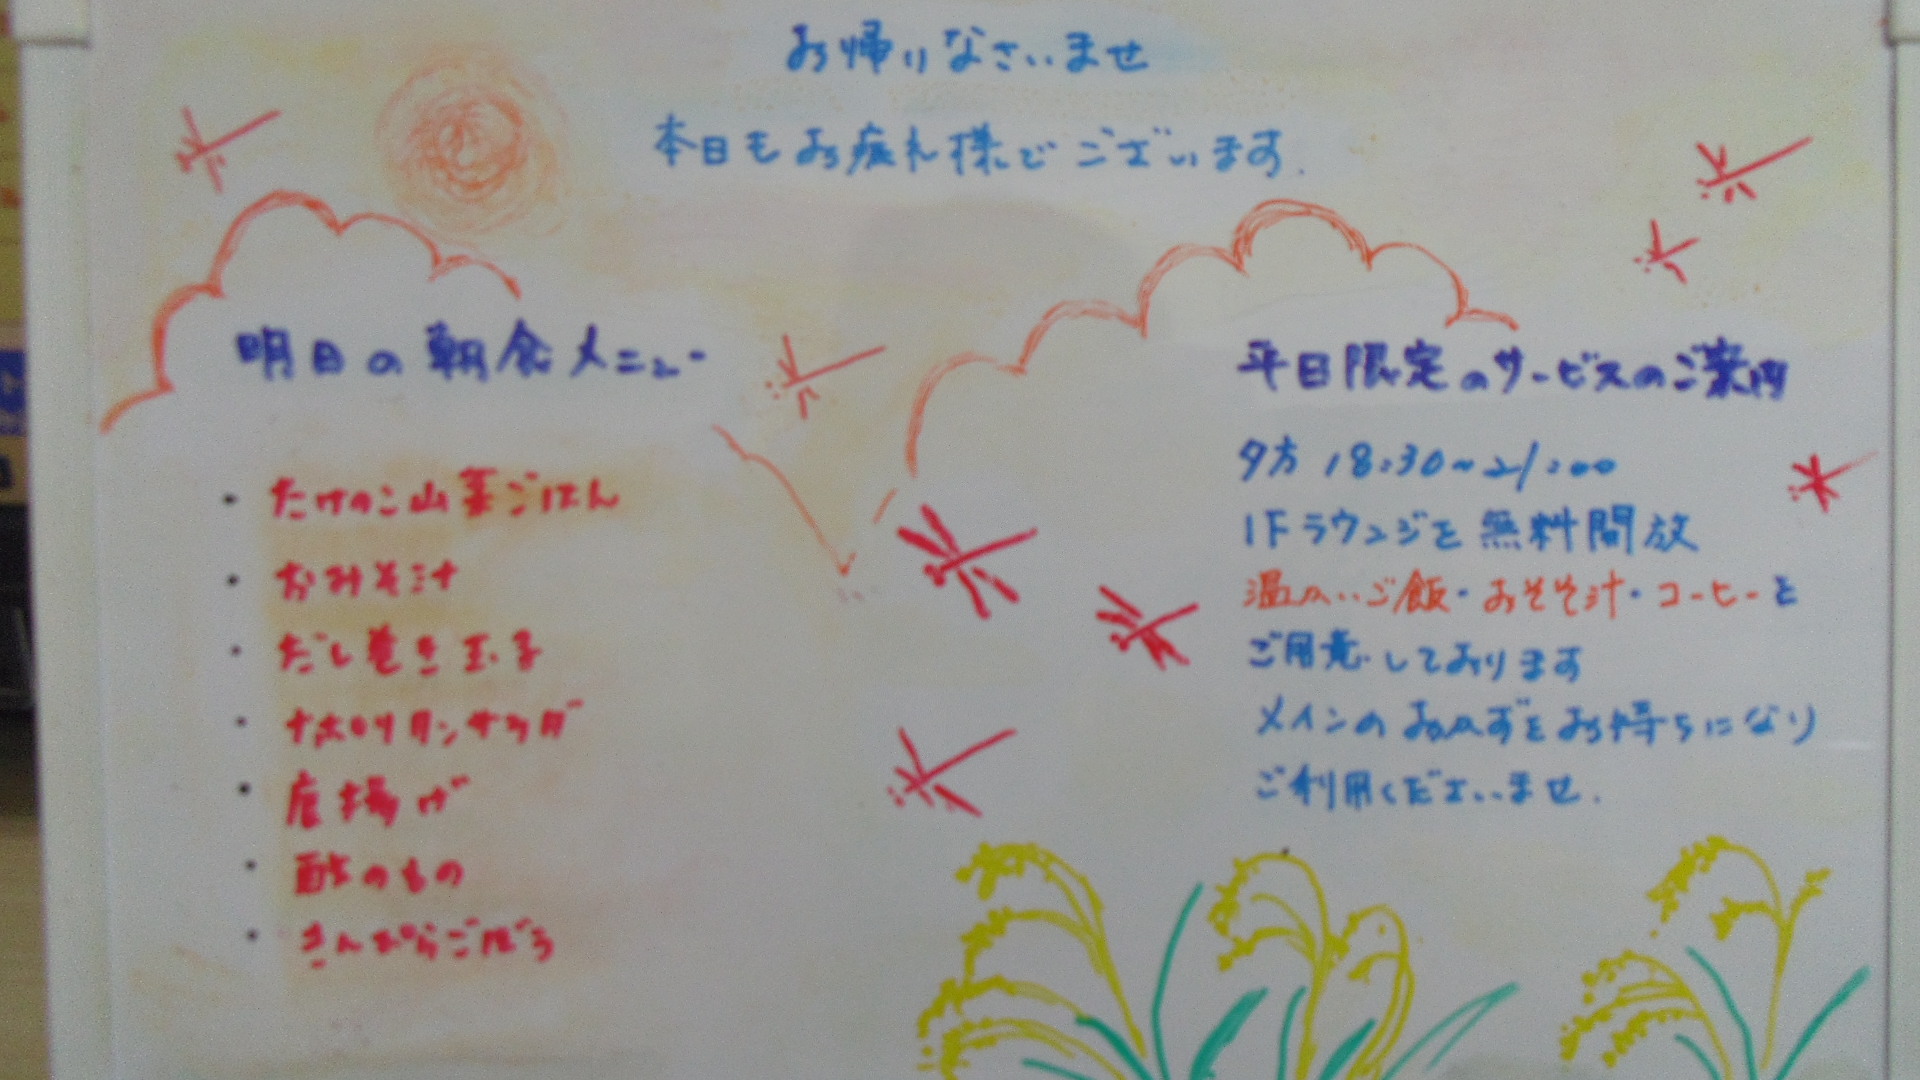 お帰りなさいませ
本日もお疲れ様でございます.
明日の朝食メニュー
・たけのこ山菜ごはん
・おみそ汁
・だし巻き玉子
・ナポリタンサラダ
・唐揚げ
・酢のもの
・きんぴらごぼう
平日限定のサービスのご案内
夕方 18:30~21:00
1Fラウンジを無料開放
温かいご飯・おみそ汁・コーヒーを
ご用意しております
メインのおかずをお持ちになり
ご利用くださいませ.